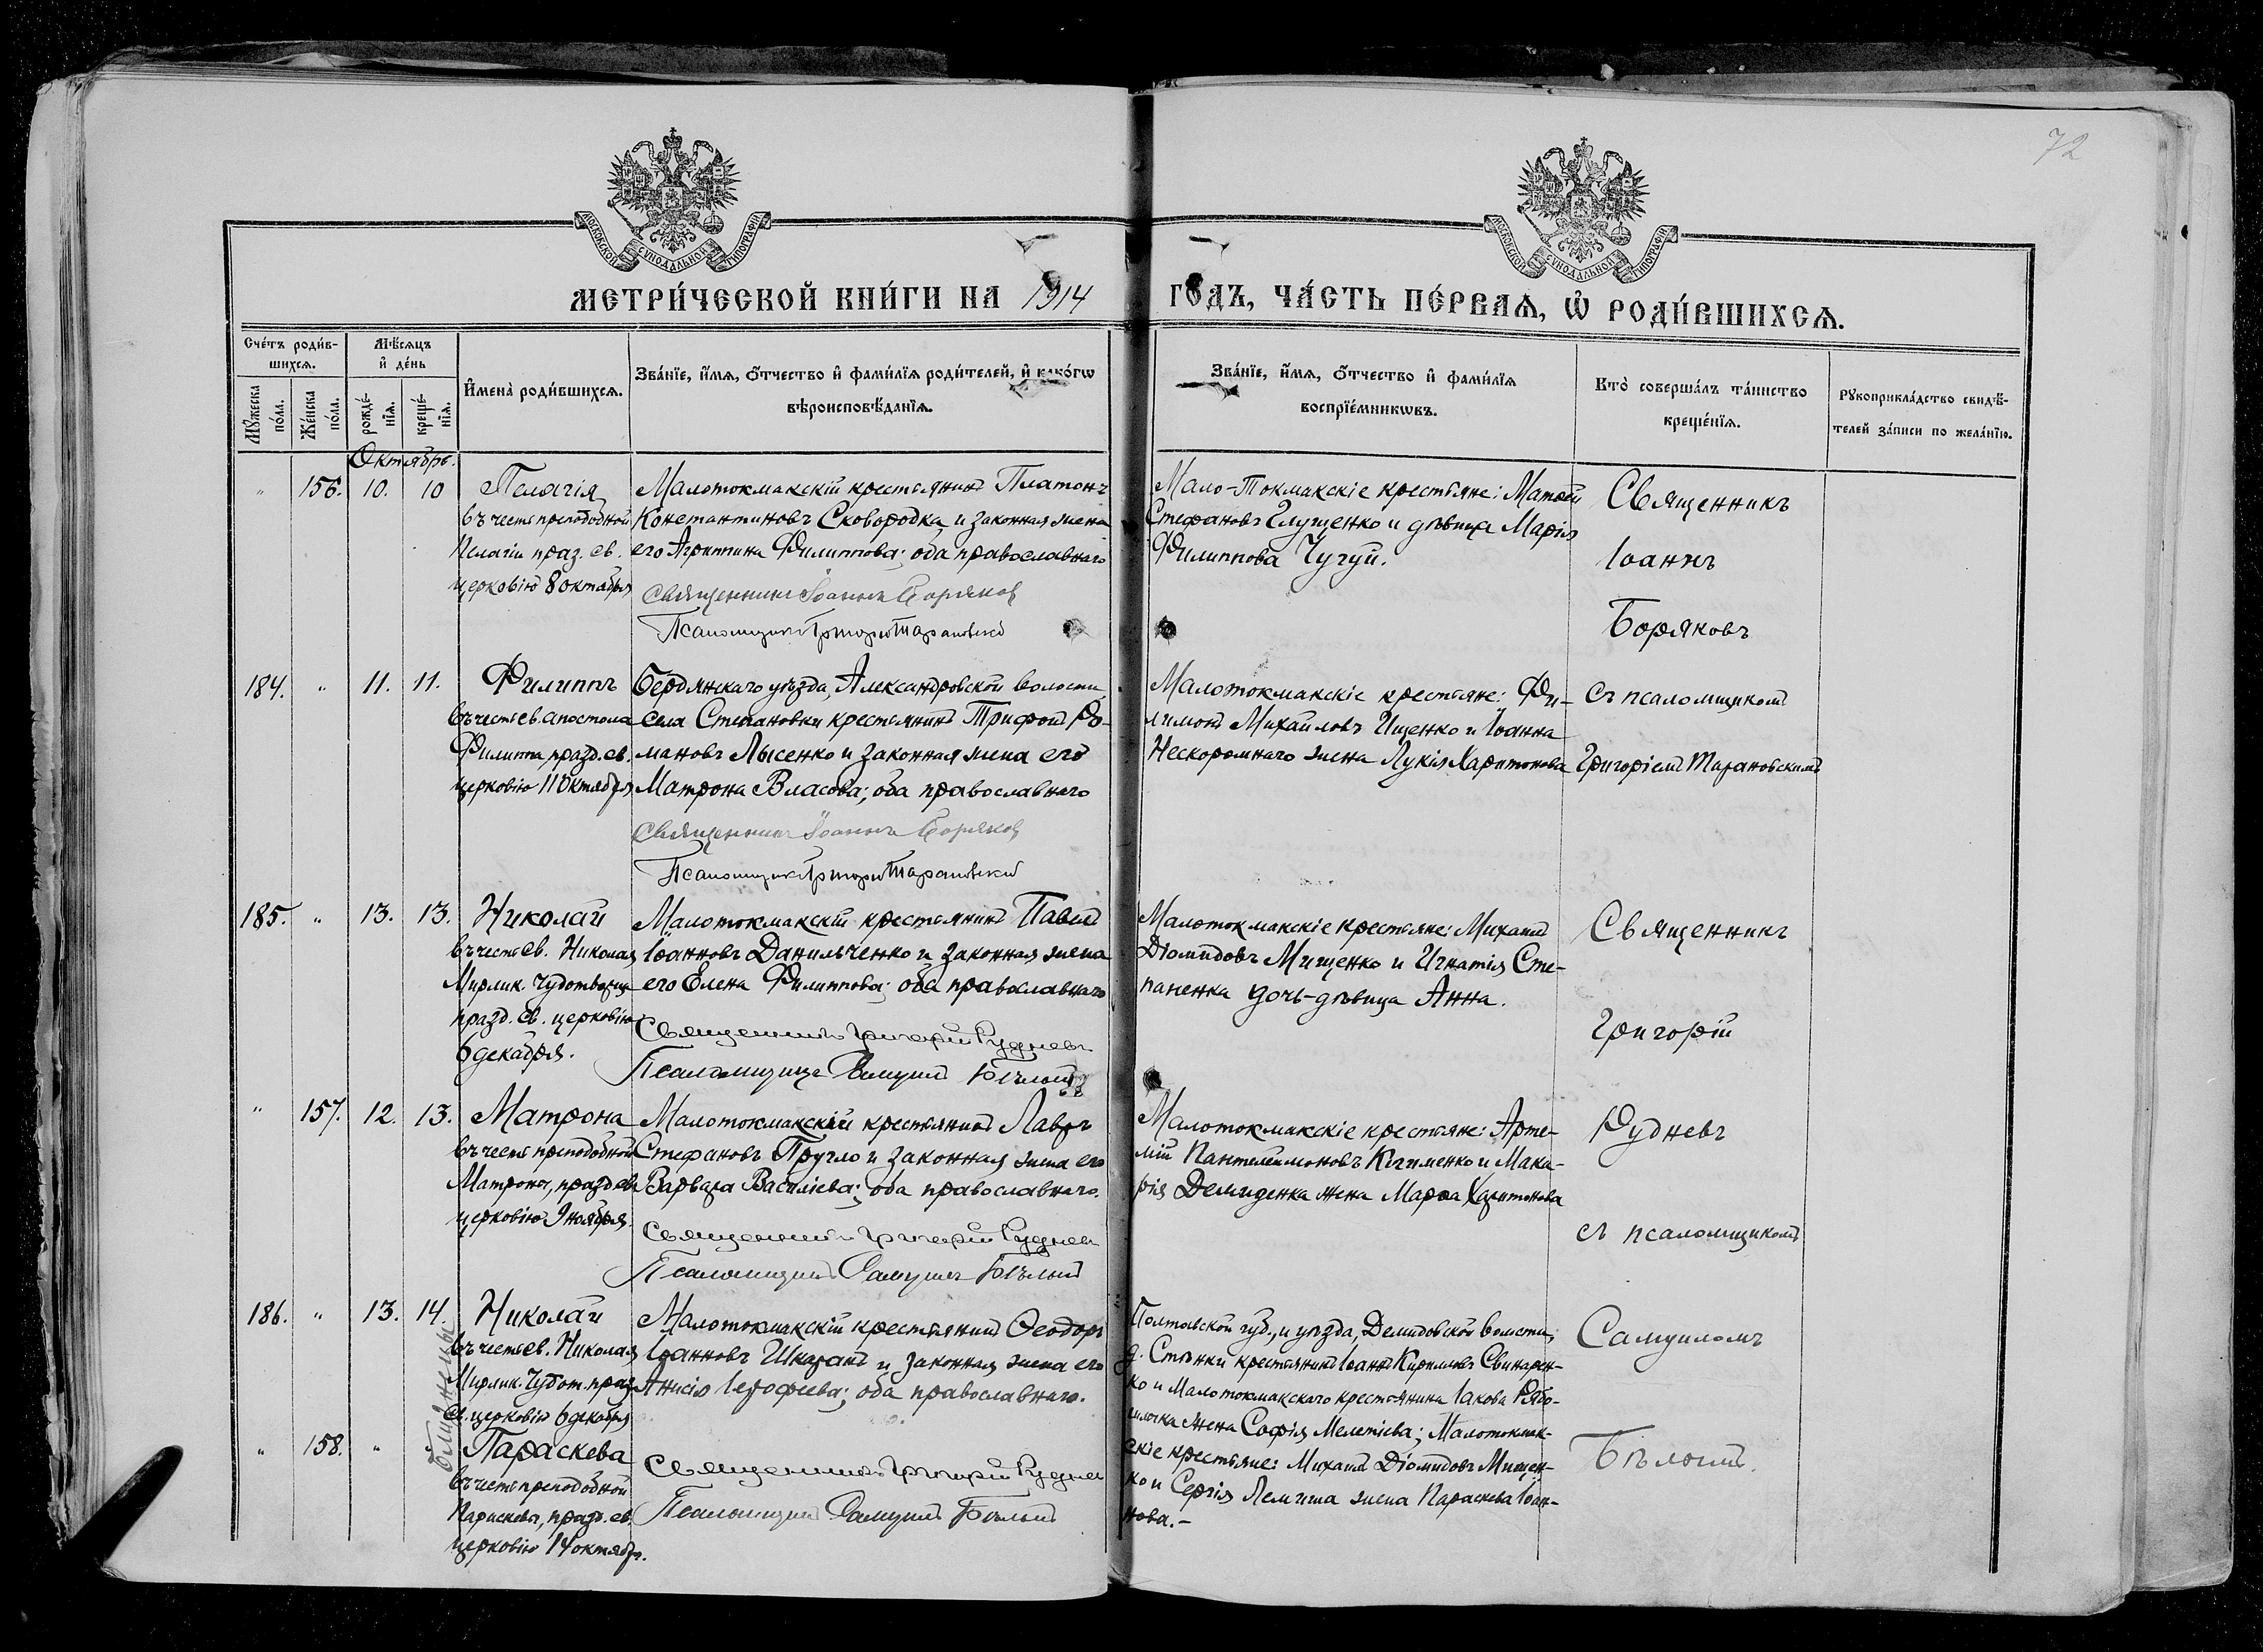 72
МОСКОВСКОЙ СѴНОДАЛЬНОЙ ТИПОГРАФІИ
МОСКОВСКОЙ СѴНОДАЛЬНОЙ ТИПОГРАФІИ
МЕТРИ́ЧЕСКОЙ КНИ́ГИ НА 1914 ГО́ДЪ, ЧА́СТЬ ПЕ́РВАѦ, Ѡ҆ РОДИ́ВШИХСѦ.
Сче́тъ роди́в-
шихсѧ.
Мѣ́сѧцъ
и҆ де́нь
Мꙋ́жеска
по́ла.
Же́нска
по́ла.
рожде́-
нїѧ.
креще́-
нїѧ.
И҆мена̀ роди́вшихсѧ.
Зва́нїе, и҆́мѧ, ѻ҆́тчество и҆ фами́лїѧ роди́телей, и҆ како́гѡ
вѣроисповѣ́данїѧ.
Зва́нїе, и҆́мѧ, ѻ҆́тчество и҆ фами́лїѧ
воспрїе́мникѡвъ.
Кто̀ соверша́лъ та́инство
креще́нїѧ.
Рꙋкоприкла́дство свидѣ́-
телей за́писи по жела́нїю.
Октябрь.
" 156. 10. 10
Пелагія
въ честь преподобной
Пелагіи праз. св.
церковію 8 октября
Малотокмакскій крестьянинъ Платонъ
Константиновъ Сковородка и законная жена
его Агриппина Филиппова; оба православнаго
Священникъ Іоаннъ Боряков
Псаломщикъ Григорій Тарановскій
Мало-Токмакскіе крестьяне: Матѳей
Стефановъ Глущенко и дѣвица Марія
Филиппова Чугуй.
Священникъ
Іоаннъ
Боряковъ
184. " 11. 11.
Филиппъ
въ честь св. апостола
Филиппа, празд. св.
церковію 11 Октября
Бердянскаго уѣзда, Александровской волости,
села Степановки крестьянинъ Трифонъ Ро-
мановъ Лысенко и законная жена его
Матрона Власова; оба православнаго
Священникъ Іоаннъ Боряков
Псаломщикъ Григорій Тарановскій
Малотокмакскіе крестьяне: Фи-
лимонъ Михайловъ Ищенко и Іоанна
Нескоромнаго жена Лукія Харитонова
съ псаломщикомъ
Григоріемъ Тарановскимъ
185. " 13. 13.
Николай
въ честь св. Николая
Мирлик. Чудотворца
празд. св. церковію
6 декабря.
Малотокмакскій крестьянинъ Павелъ
Іоанновъ Данильченко и законная жена
его Елена Филиппова; оба православнаго
Священникъ Григорій Рудневъ
Псаломщикъ Самуилъ Бѣлый
Малотокмакскіе крестьяне: Михаилъ
Діомидовъ Мищенко и Игнатія Сте-
паненка дочь-дѣвица Анна.
Священникъ
Григорій
" 157. 12. 13.
Матрона
въ честь преподобной
Матроны, празд. св.
церковію 9 ноября.
Малотокмакскій крестьянинъ Лавръ
Стефановъ Пругло и законная жена его
Варвара Василіева; оба православнаго.
Священникъ Григорій Руднев
Псаломщикъ Самуилъ Бѣлый
Малотокмакскіе крестьяне: Арте-
мій Пантелеимоновъ и Мака-
рія Демиденка жена Марѳа Харитонова
Рудневъ
съ псаломщикомъ
186. " 13. 14.
близнецы
Николай
въ честь св. Николая
Мирлик. Чудот. праз.
св. церковію 6 декабря
Малотокмакскій крестьянинъ Ѳеодоръ
Іоанновъ и законная жена его
Анисія Іероѳеева; оба православнаго.
Полтавской губ., и уѣзда, Демидовской волости,
д. Стѣнки крестьянинъ Іоаннъ Кирилловъ Свинарен-
ко и Малотокмакскаго крестьянина Іакова Рябо-
жена Софія Мелетіева; Малотокмак-
скіе крестьяне: Михаилъ Діомидовъ Мищен-
ко и Сергія Лемиша жена Параскева Іоан-
нова.-
Самуиломъ
Бѣлымъ.
" 158. " "
Параскева
въ честь преподобной
Параскевы, празд. св.
церковію 14 октября.
Священникъ Григорій Руднев
Псаломщикъ Самуилъ Бѣлый